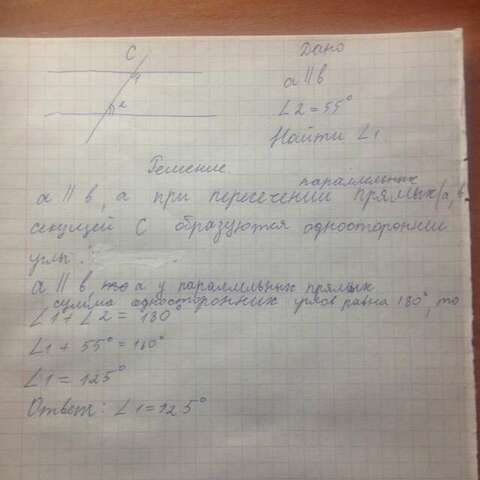 C
Дано
1
a || в
2
∠2 = 55°
Найти ∠1
Решение
параллельных
a || в, а при пересечении прямых (a, в
секущей C образуются односторонние
углы.
a || в, а у параллельных прямых
сумма односторонних углов равна 180°, то
∠1 + ∠2 = 180°
∠1 + 55° = 180°
∠1 = 125°
Ответ: ∠1 = 125°